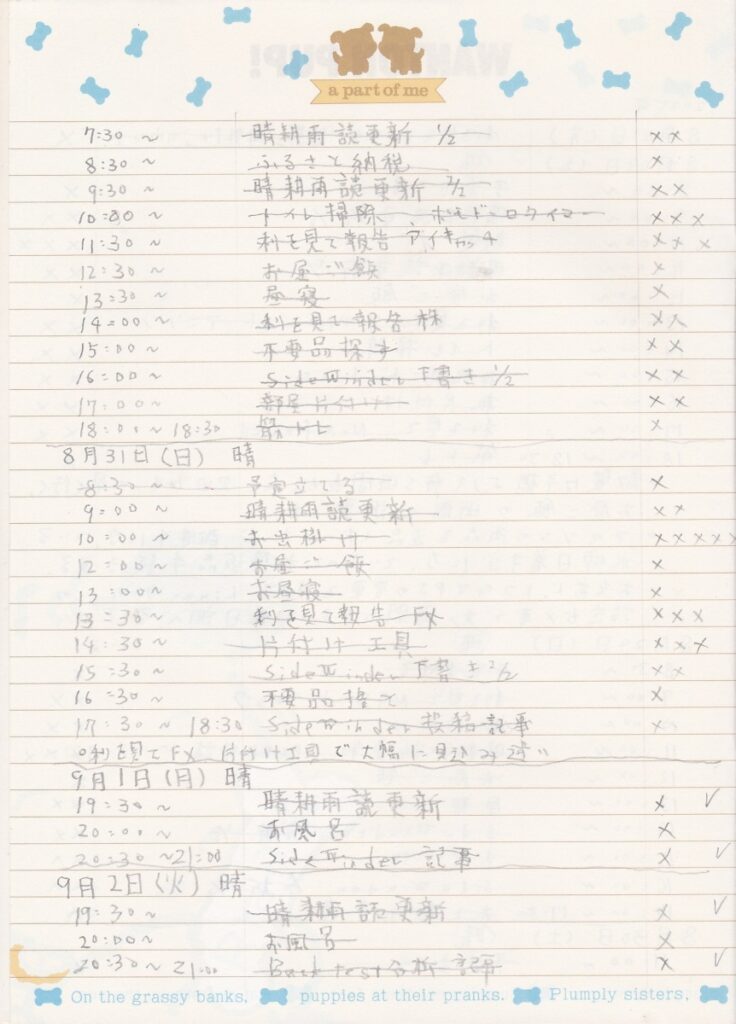 a part of me
7:30 ~ 晴耕雨読更新 1/2 ××
8:30 ~ ふるさと納税 ×
9:30 ~ 晴耕雨読更新 2/2 ××
10:00 ~ トイレ掃除 ポモドーロタイマー ×××
11:30 ~ 利を見て報告 ×××
12:30 ~ お昼ご飯 ×
13:30 ~ 昼寝 ×
14:00 ~ 利を見て報告 株 ××
15:00 ~ 不要品探す ××
16:00 ~ SideWinder 下書き 1/2 ××
17:00 ~ 部屋片付け ××
18:00 ~ 18:30 筋トレ ×
8月31日(日) 晴
8:30 ~ 予定立てる ×
9:00 ~ 晴耕雨読更新 ××
10:00 ~ お出掛け ×××××
12:00 ~ お昼ご飯 ×
13:00 ~ お昼寝 ×
13:30 ~ 利を見て報告 FX ×××
14:30 ~ 片付け工具 ×××
15:30 ~ SideWinder 下書き 2/2 ××
16:30 ~ 不要品捨て ×
17:30 ~ 18:30 SideWinder 投稿記事 ××
○利を見てFX 片付け工具で大幅に見込み違い
9月1日(月) 晴
19:30 ~ 晴耕雨読更新 × ✓
20:00 ~ お風呂 ×
20:30 ~ 21:00 SideWinder 記事 × ✓
9月2日(火) 晴
19:30 ~ 晴耕雨読更新 × ✓
20:00 ~ お風呂 ×
20:30 ~ 21:00 Backtest分析 記事 × ✓
On the grassy banks, puppies at their pranks. Plumply sisters,